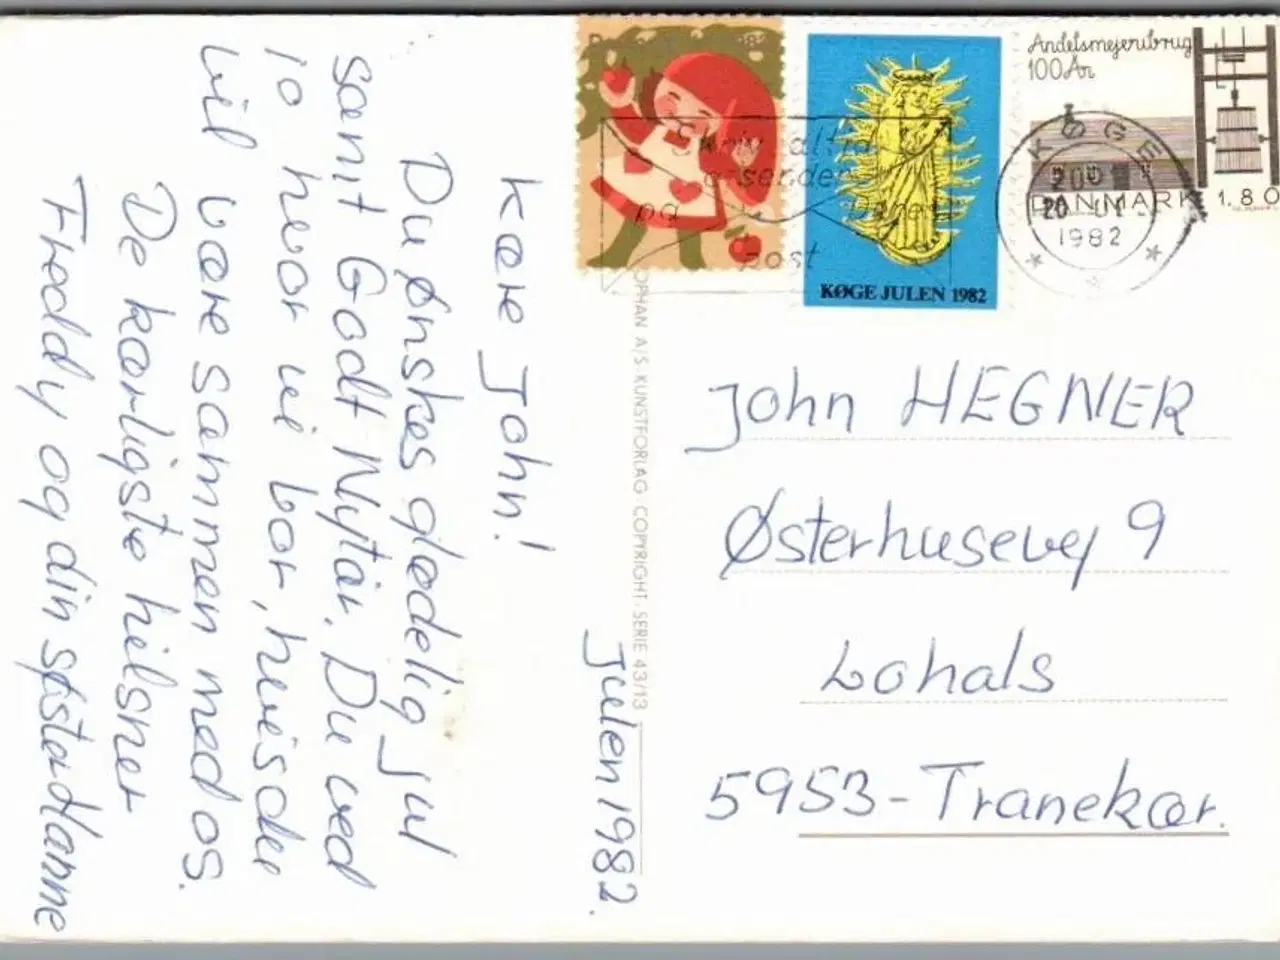 Julen 1982.
Kære John!
Du ønskes glædelig jul
samt Godt Nytår. Du ved
jo hvor vi bor, hvis du
vil være sammen med os.
De kærligste hilsner
Freddy og din søster Hanne
OPHAN A/S · KUNSTFORLAG · COPYRIGHT · SERIE 43/13
1982
Skriv altid
afsender
på Deres
post
KØGE JULEN 1982
Andelsmejeribrug
100 År
DANMARK 1.80
KØGE
1982
John HEGNER
Østerhusevej 9
Lohals
5953-Tranekær.